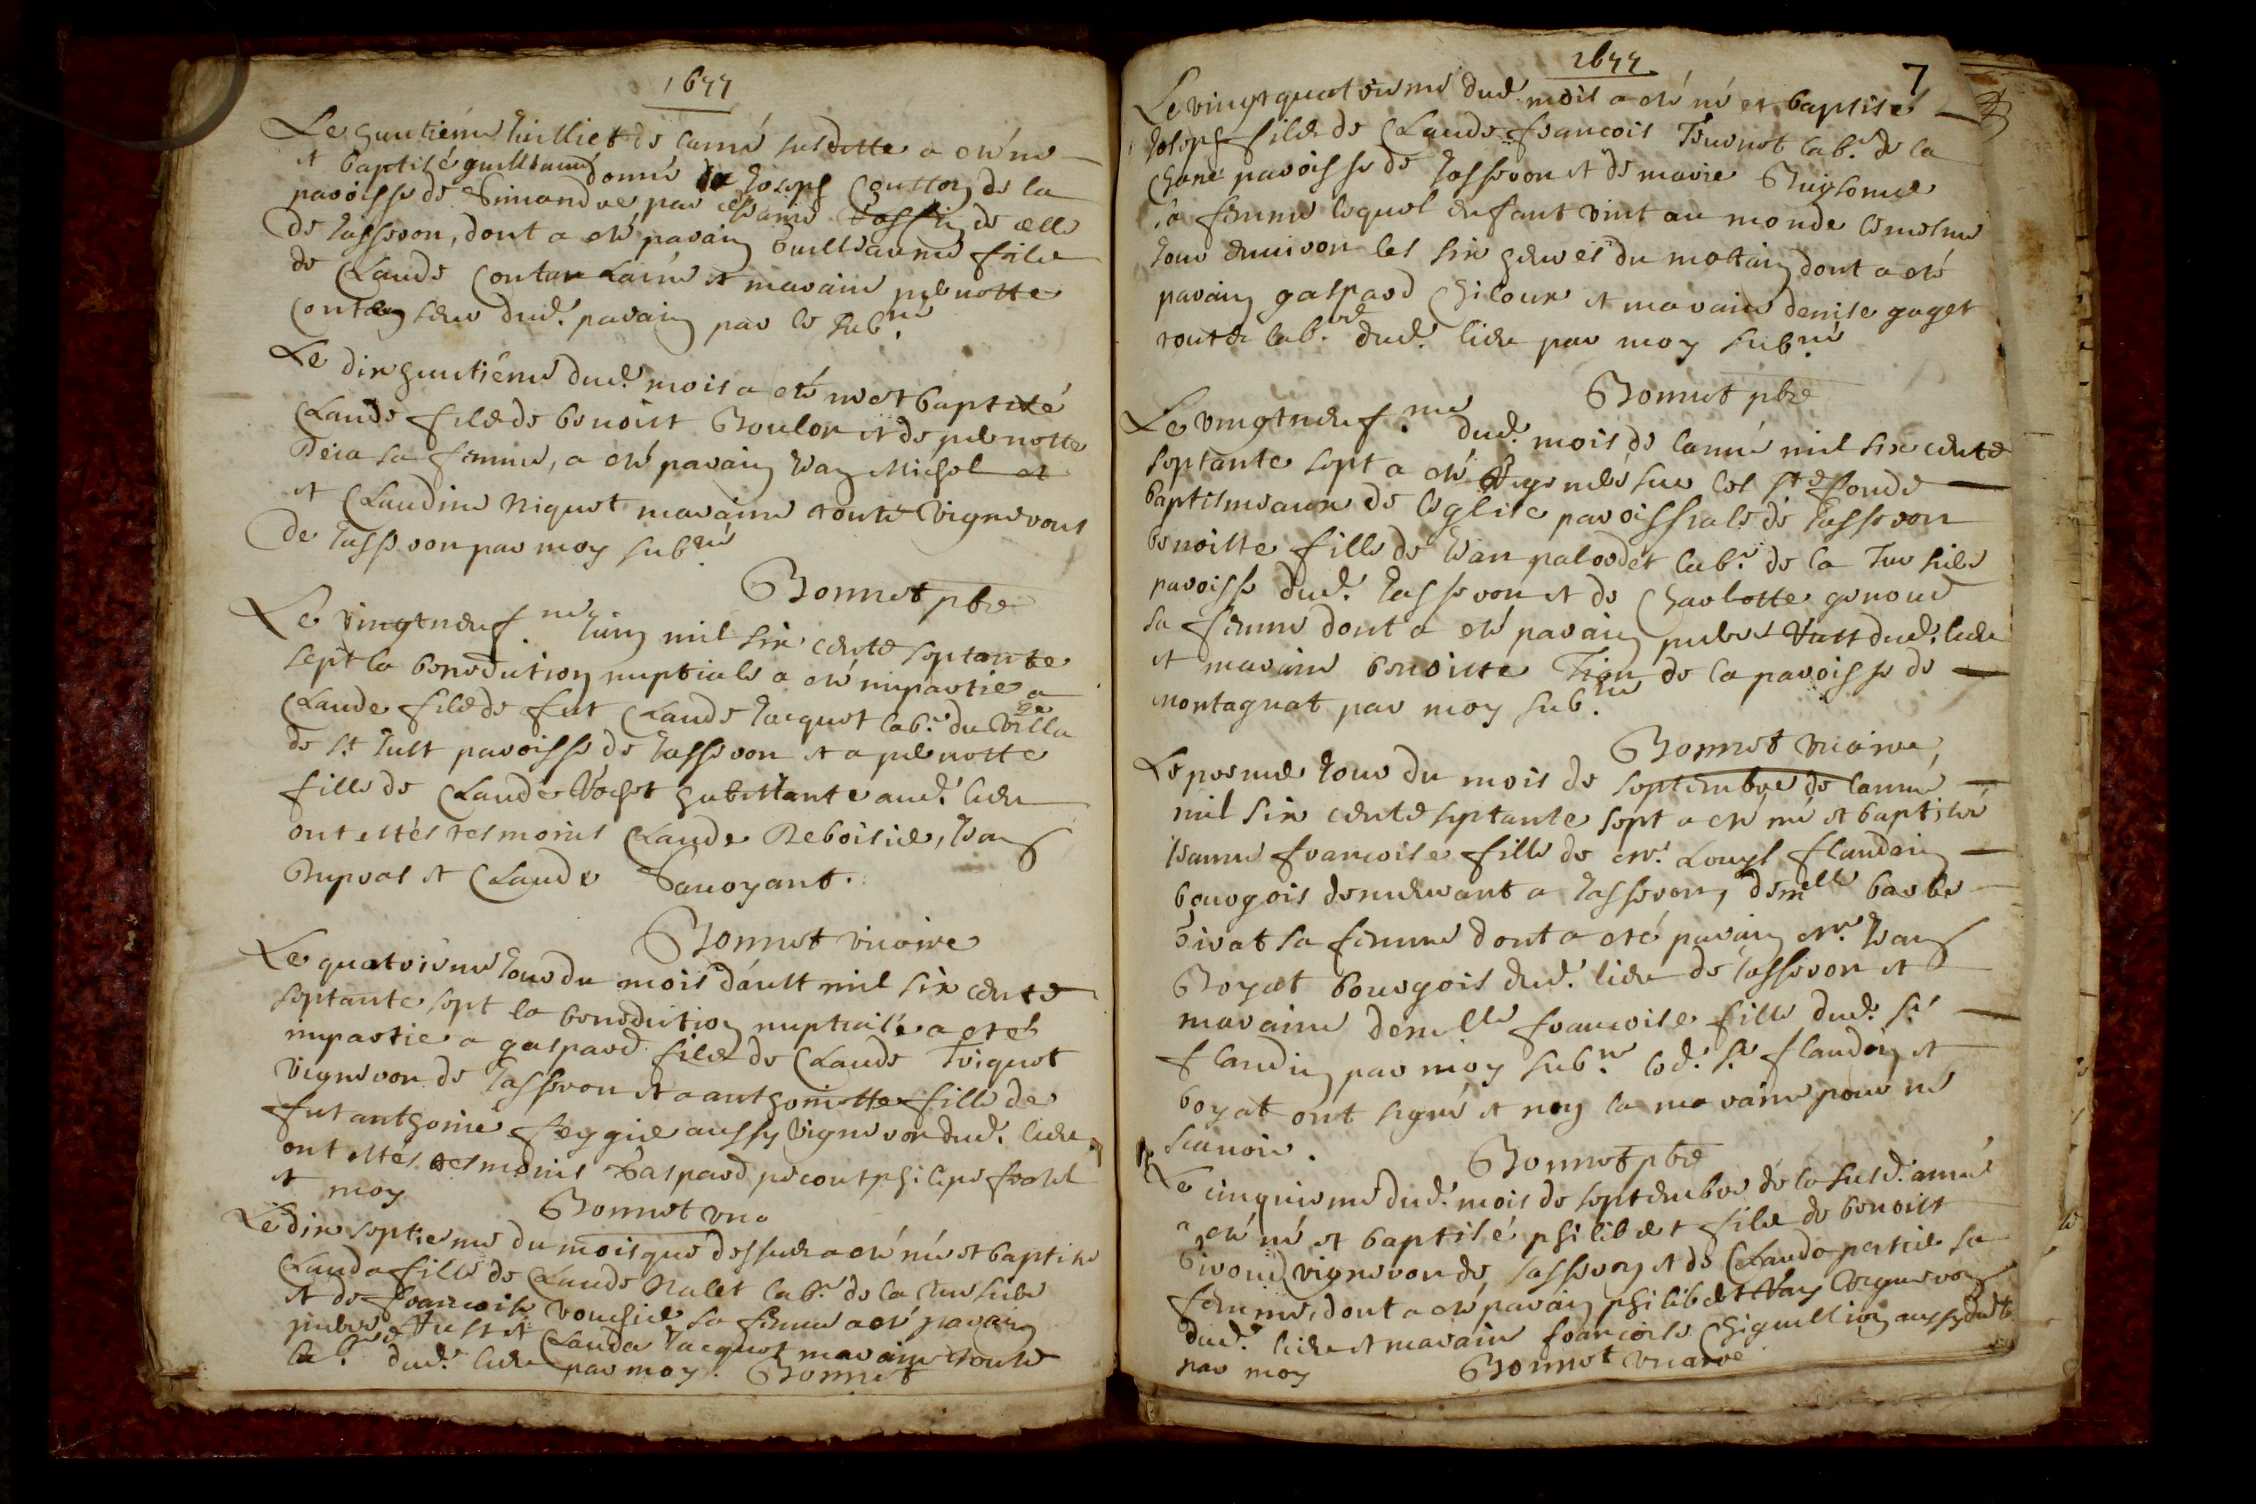 1677
Le huictiéme Juilliet de l'anné susditte a eté né
et baptisé guilliaume donné de Joseph Coutton de la
paroisse de Simandre par Jeanne de celle
de Jasseron, dont a eté parain Guilliaume fils
de Claude Conton L'ainé et maraine pernette
Conton seur dud. parain par le sub.né
Le dix huictiéme dud. mois a eté né et baptisé
Claude fils de benoist Boulon et de pernette
sa femme, a eté parain Jean Michel et
et Claudine Niquet maraine touts vignerons
de Jasseron par moy sub.né
Bonnet pbre
Le vingtneuf.me Juin mil six cents septante
sept la benediction nuptiale a eté impartie a
Claude fils de fut Claude Jacquet lab.r du Villa
ge
de St Just paroisse de Jasseron et a pernette
fille de Claude Vochet habittante aud. lieu
ont estés tesmoins Claude Reboisier, Jean
Dupras et Claude Sauoyant.
Bonnet vicaire
Le quatriéme Jour du mois d'aust mil six cents
septante sept la benediction nuptiale a etes
impartie a gaspard fils de Claude Triquet
vigneron de Jasseron et a anthoinette fille de
fut anthoine feggier aussy vigneron dud. lieu
ont estés tesmoins Gaspard pecout philipe
et moy
Bonnet vica
Le dix septiéme du mois que dessus a eté née et baptisée
Clauda fille de Claude Nalet lab.r de la
et de francoise vouchier sa femme a eté parain
pierre Just et Clauda Jacquet maraine touts
lab.rs dud. lieu par moy. Bonnet
1677
7
Le vingt quatriéme dud. mois a eté né et baptisé
Joseph fils de Claude francois Teuenet lab.r de la
Chane paroisse de Jasseron et de marie
sa femme lequel enfant vint au monde le mesme
Jour enuiron les six heures du matain dont a eté
parain gaspard Chiloux et maraine denise goget
touts lab.rs dud. lieu par moy sub.né
Bonnet pbre
Le vingtneuf.me dud. mois de l'anné mil six cents
septante sept a eté Regeneré sur les sts fonds
baptismeaux de leglise paroissiale de Jasseron
benoitte fille de Jean palordet lab.r de la
paroisse dud. Jasseron et de Charlotte genoud
sa femme dont a eté parain pierre Just dud. lieu
et maraine benoitte Tion de la paroisse de
montagnat par moy sub.né
Bonnet vicaire
Le premier Jour du mois de septembre de l'anné
mil six cents septante sept a eté né et baptisé
Jeanne francoise fille de mr. Louys flandrin
bourgois demeurant a Jasseron, demlle barbe
Girat sa femme dont a eté parain mr. Jean
Boyat bourgois dud. lieu de Jasseron et
maraine demlle francoise fille dud. sr
flandrin par moy sub.né led. sr flandrin et
boyat ont signé et non la maraine pour ne
scauoir.
Bonnet pbre
Le cinquiéme dud. mois de septembre de la susd. anné
a eté né et baptisé philibert fils de benoist
Giroud vigneron de Jasseron et de Clauda pertier sa
femme, dont a eté parain philibert vigneron
dud. lieu et maraine francoise Chiquellion aussy dud.
par moy
Bonnet vicaire